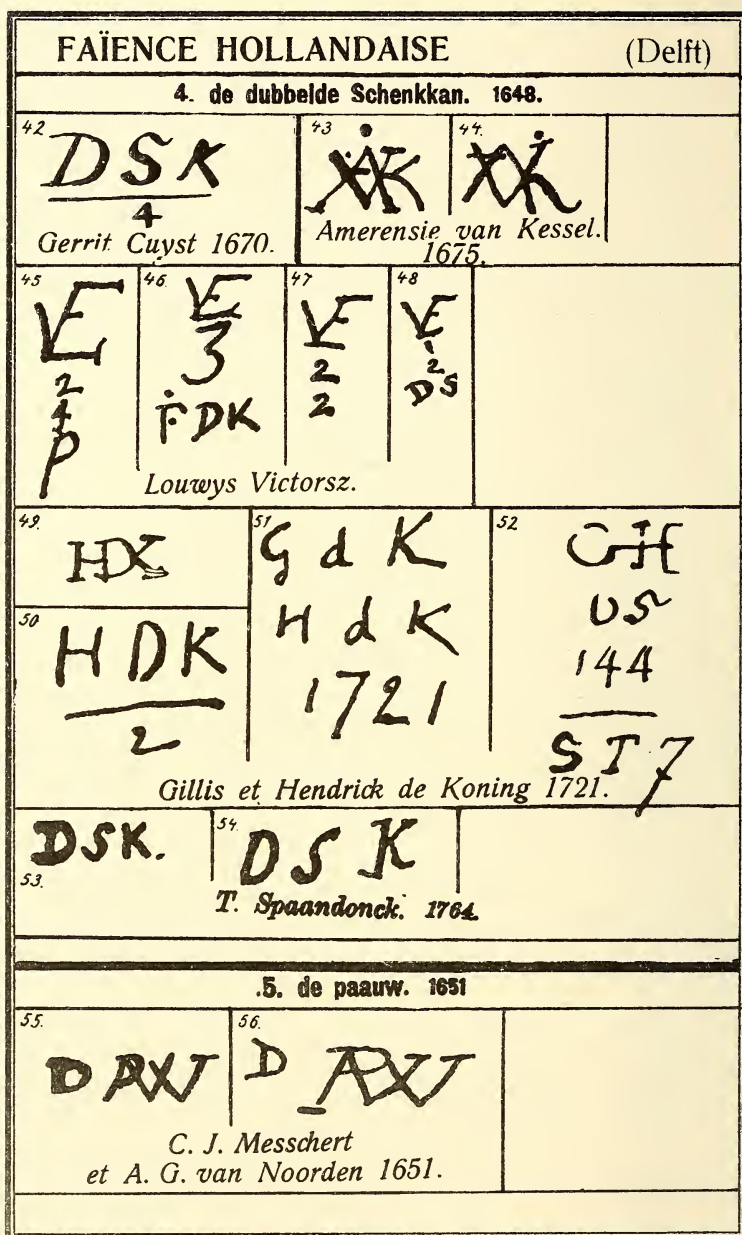 FAÏENCE HOLLANDAISE (Delft)
4. de dubbelde Schenkkan. 1648.
42
DSK
4
Gerrit Cuyst 1670.
43
44.
Amerensie van Kessel.
1675.
45
VE
2
4
P
46.
VE
3
FDK
47
VE
2
2
48
VE
1
2
DS
Louwys Victorsz.
49.
HDK
50
HDK
2
51
G d K
H d K
1721
52
GH
US
144
ST7
Gillis et Hendrick de Koning 1721.
DSK.
53.
54.
DSK
T. Spaandonck. 1764.
.5. de paauw. 1651
55.
D PAW
56.
D PAW
C. J. Messchert
et A. G. van Noorden 1651.